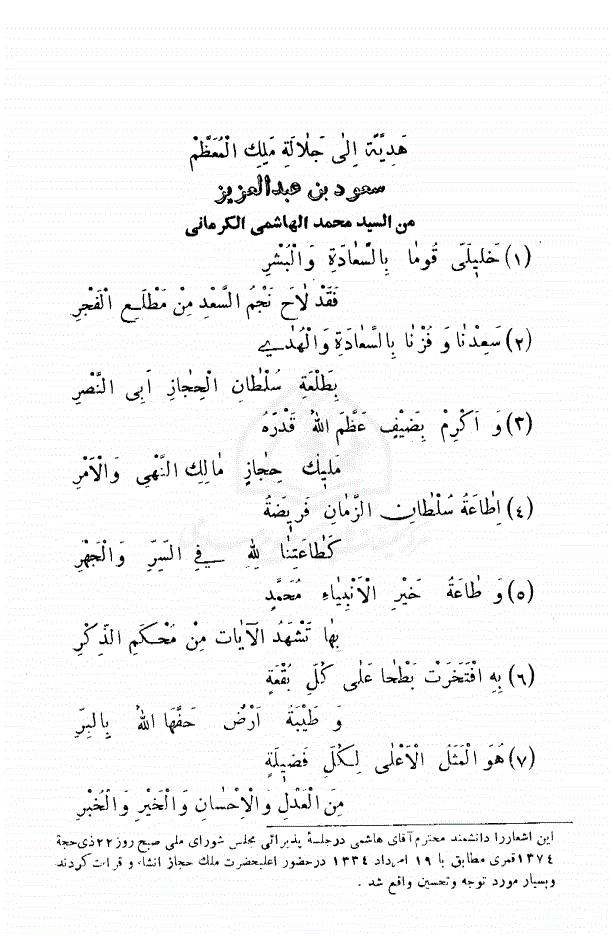 هَدِيَّة إِلىٰ جَلٰالَةِ مَلِكِ الْمُعَظَّمْ
سعود بن عبدالعزيز
من السيد محمد الهاشمى الكرمانى
(۱) خَليٖلَىَّ قُومٰا بِالسَّعٰادَةِ وَالْبُشْرِ
فَقَدْ لاٰحَ نَجْمُ السَّعْدِ مِنْ مَطْلَعِ الْفَجْرِ
(۲) سَعِدْنٰا وَ فُزْنٰا بِالسَّعٰادَةِ وَالْهُدٰے
بِطَلْعَةِ سُلْطٰانِ الْحِجٰازِ اَبِى النَّصْرِ
(۳) وَ اَكْرِمْ بِضَيْفٍ عَظَّمَ اللهُ قَدْرَهُ
مَليٖكِ حِجٰازٍ مٰالِكِ النَّهْىِ وَالْاَمْرِ
(٤) اِطٰاعَةُ سُلْطٰانِ الزَّمٰانِ فَريٖضَةُ
كَطٰاعَتِنٰا لِلّٰهِ فِے السِّرِّ وَالْجَهْرِ
(٥) وَ طٰاعَةُ خَيْرِ الْاَنْبِيٰاءِ مُحَمَّدٍ
بِهٰا تَشْهَدُ الْآيٰاتُ مِنْ مُحْكَمِ الذِّكْرِ
(٦) بِهِ افْتَخَرَتْ بَطْحٰا عَلٰى كُلِّ بُقْعَةٍ
وَ طَيْبَةُ اَرْضٌ حَفَّهَا اللهُ بِالْبِرِّ
(۷) هُوَ الْمَثَلُ الْاَعْلٰى لِكُلِّ فَضيٖلَةٍ
مِنَ الْعَدْلِ وَالْاِحْسٰانِ وَالْخَيْرِ وَالْخُبْرِ
این اشعاررا دانشمند محترم آقای هاشمی درجلسهٔ پذیرائی مجلس شورای ملی صبح روز ۲۲ ذی‌حجهٔ
۱۳۷٤ قمری مطابق با ۱۹ امرداد ۱۳۳٤ درحضور اعلیحضرت ملك حجاز انشاء و قرائت کردند
وبسیار مورد توجه وتحسین واقع شد .